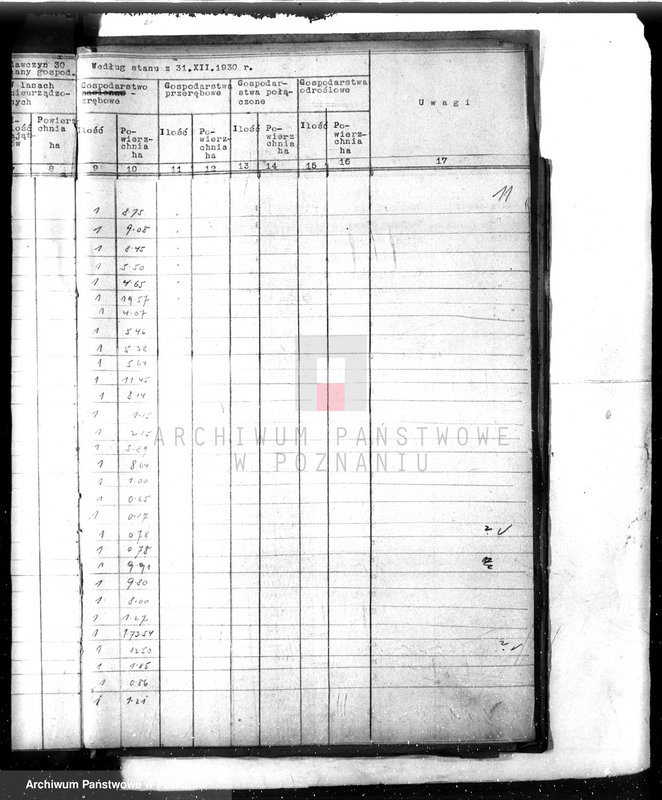 Według stanu z 31.XII.1930 r.
Gospodarstwo zrębowe
Gospodarstwa przerębowe
Gospodarstwa połączone
Gospodarstwa odroślowe
Uwagi
Powierzchnia ha
Ilość Powierzchnia ha Ilość Powierzchnia ha Ilość Powierzchnia ha Ilość Powierzchnia ha
8 9 10 11 12 13 14 15 16 17
11
1 8.75
1 9.08
1 8.45
1 5.50
1 4.65
1 19.57
1 4.07
1 5.46
1
1 5.61
1 11.45
1 8.14
1 1.15
1 2.15
1 5.89
1 8.64
1 1.00
1 0.65
1 0.17
1 0.78
1 0.78
1 9.91
1 9.80
1 8.00
1 1.27
1 173.54
1 12.50
1 1.85
1 0.86
1 1.21
ARCHIWUM PAŃSTWOWE
W POZNANIU
Archiwum Państwowe w